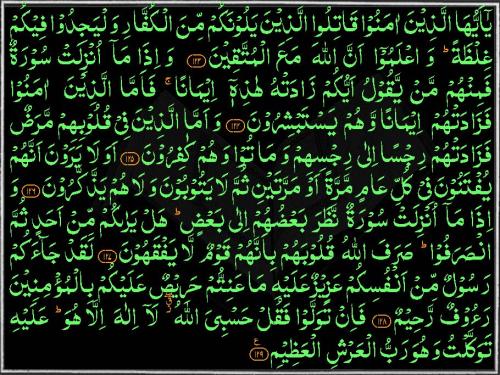 يٰۤاَيُّهَا الَّذِيْنَ اٰمَنُوْا قَاتِلُوا الَّذِيْنَ يَلُوْنَكُمْ مِّنَ الْكُفَّارِ وَلْيَجِدُوْا فِيْكُمْ
غِلْظَةً ؕ وَ اعْلَمُوْۤا اَنَّ اللّٰهَ مَعَ الْمُتَّقِيْنَ ﴿۱۲۳﴾ وَ اِذَا مَاۤ اُنْزِلَتْ سُوْرَةٌ
فَمِنْهُمْ مَّنْ يَّقُوْلُ اَيُّكُمْ زَادَتْهُ هٰذِهٖۤ اِيْمَانًا ۚ فَاَمَّا الَّذِيْنَ اٰمَنُوْا
فَزَادَتْهُمْ اِيْمَانًا وَّ هُمْ يَسْتَبْشِرُوْنَ ﴿۱۲۴﴾ وَ اَمَّا الَّذِيْنَ فِيْ قُلُوْبِهِمْ مَّرَضٌ
فَزَادَتْهُمْ رِجْسًا اِلٰى رِجْسِهِمْ وَ مَاتُوْا وَ هُمْ كٰفِرُوْنَ ﴿۱۲۵﴾ اَوَ لَا يَرَوْنَ اَنَّهُمْ
يُفْتَنُوْنَ فِيْ كُلِّ عَامٍ مَّرَّةً اَوْ مَرَّتَيْنِ ثُمَّ لَا يَتُوْبُوْنَ وَ لَا هُمْ يَذَّكَّرُوْنَ ﴿۱۲۶﴾ وَ
اِذَا مَاۤ اُنْزِلَتْ سُوْرَةٌ نَّظَرَ بَعْضُهُمْ اِلٰى بَعْضٍ ؕ هَلْ يَرٰىكُمْ مِّنْ اَحَدٍ ثُمَّ
انْصَرَفُوْا ؕ صَرَفَ اللّٰهُ قُلُوْبَهُمْ بِاَنَّهُمْ قَوْمٌ لَّا يَفْقَهُوْنَ ﴿۱۲۷﴾ لَقَدْ جَآءَكُمْ
رَسُوْلٌ مِّنْ اَنْفُسِكُمْ عَزِيْزٌ عَلَيْهِ مَا عَنِتُّمْ حَرِيْصٌ عَلَيْكُمْ بِالْمُؤْمِنِيْنَ
رَءُوْفٌ رَّحِيْمٌ ﴿۱۲۸﴾ فَاِنْ تَوَلَّوْا فَقُلْ حَسْبِيَ اللّٰهُ ۖ لَاۤ اِلٰهَ اِلَّا هُوَ ؕ عَلَيْهِ
تَوَكَّلْتُ وَ هُوَ رَبُّ الْعَرْشِ الْعَظِيْمِ ﴿۱۲۹﴾